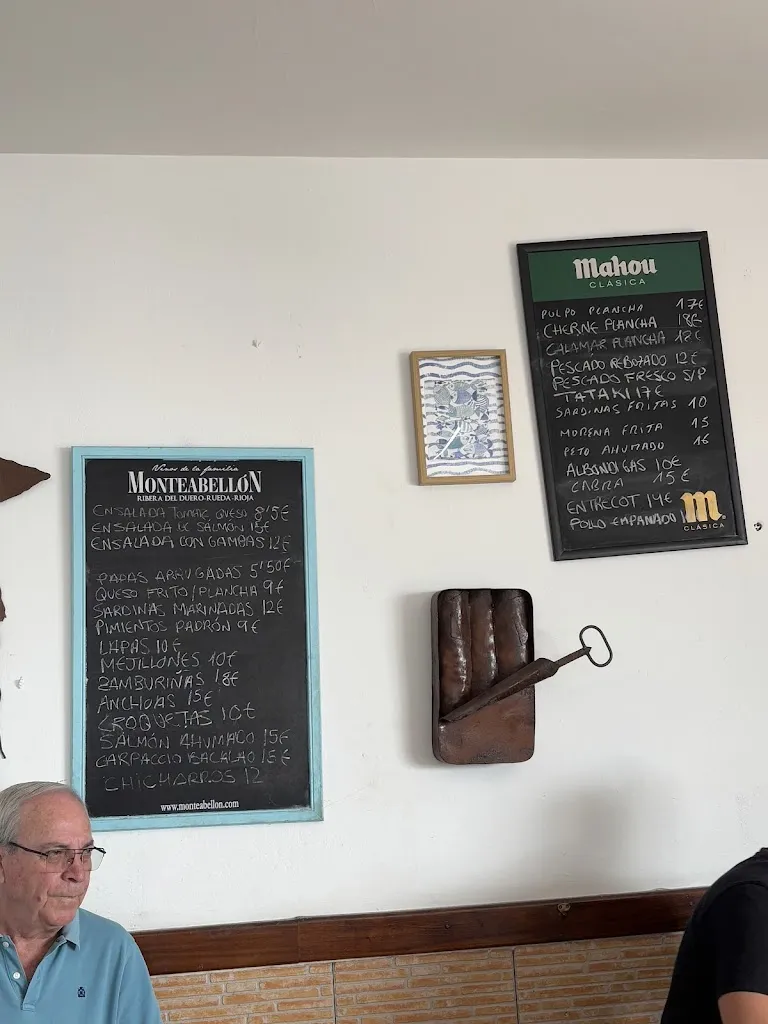 Vinos de la familia
MONTEABELLÓN
RIBERA DEL DUERO-RUEDA-RIOJA
ENSALADA TOMATE QUESO 8'5€
ENSALADA DE SALMÓN 15€
ENSALADA CON GAMBAS 12€
PAPAS ARRUGADAS 5'50€
QUESO FRITO/PLANCHA 9€
SARDINAS MARINADAS 12€
PIMIENTOS PADRÓN 9€
LAPAS 10€
MEJILLONES 10€
ZAMBURIÑAS 18€
ANCHOAS 15€
CROQUETAS 10€
SALMÓN AHUMADO 15€
CARPACCIO BACALAO 15€
CHICHARROS 12
www.monteabellon.com
Mahou
CLÁSICA
PULPO PLANCHA 17€
CHERNE PLANCHA 18€
CALAMAR PLANCHA 18€
PESCADO REBOZADO 12€
PESCADO FRESCO S/P
TATAKI 17€
SARDINAS FRITAS 10
MORENA FRITA 15
PETO AHUMADO 16
ALBONDIGAS 10€
CABRA 15€
ENTRECOT 14€
POLLO EMPANADO
M
CLÁSICA